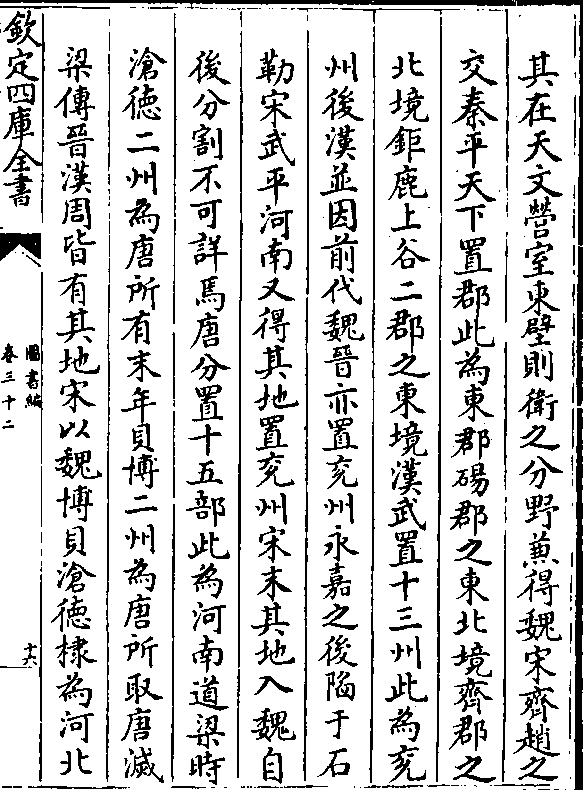 其在天文營室東壁則衛之分野兼得魏宋齊趙之
交秦平天下置郡此為東郡碭郡之東北境齊郡之
北境鉅鹿上谷二郡之東境漢武置十三州此為兗
州後漢並因前代魏晉亦置兗州永嘉之後陷于石
勒宋武平河南又得其地置兗州宋末其地入魏自
後分割不可詳焉唐分置十五部此為河南道梁時
滄徳二州為唐所有末年貝博二州為唐所取唐滅
梁傳晉漢周皆有其地宋以魏博貝滄徳棣為河北
欽定四庫全書
圖書編
卷三十二
十六